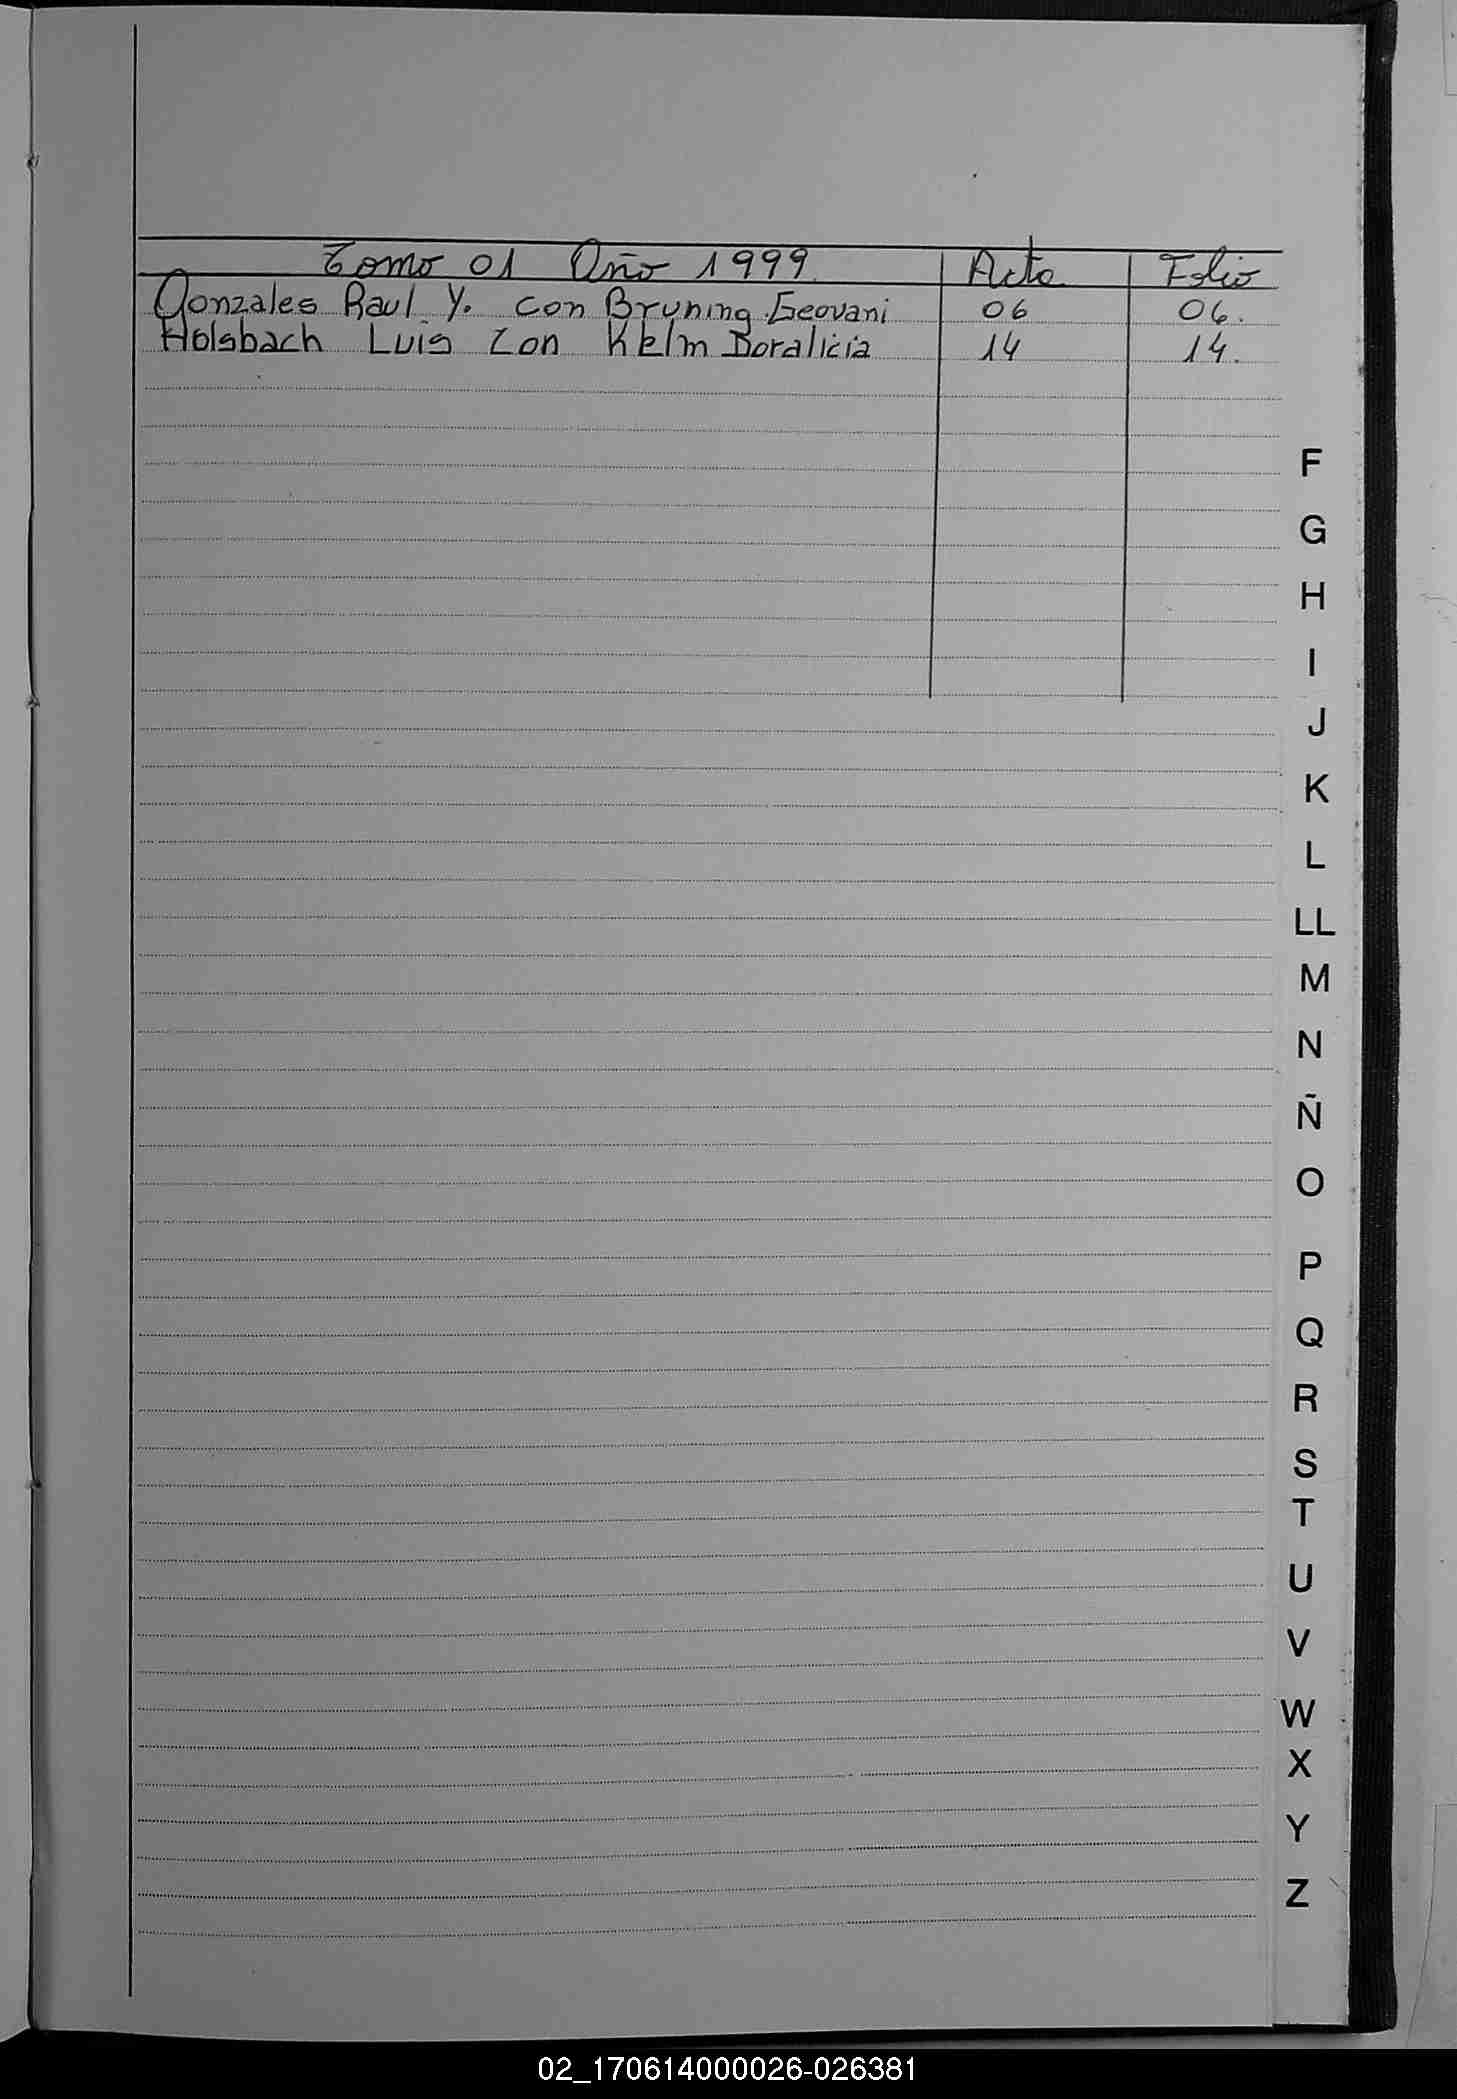 Tomo 01 Año 1999 Acta Folio
Gonzales Raul Y. con Bruning Geovani 06 06.
Holsbach Luis Con Kelm Doralicia 14 14.
F
G
H
I
J
K
L
LL
M
N
Ñ
O
P
Q
R
S
T
U
V
W
X
Y
Z
02_170614000026-026381